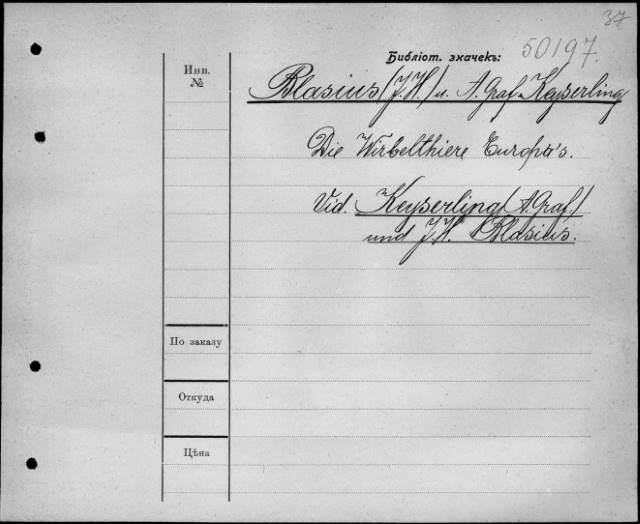 37
50197.
Библіот. значекъ:
Инв.
№
Blasius (J. H.) u. A. Graf Keyserling
Die Wirbelthiere Europa's.
Vid. Keyserling (A. Graf.)
und J. H. Blasius.
По заказу
Откуда
Цѣна